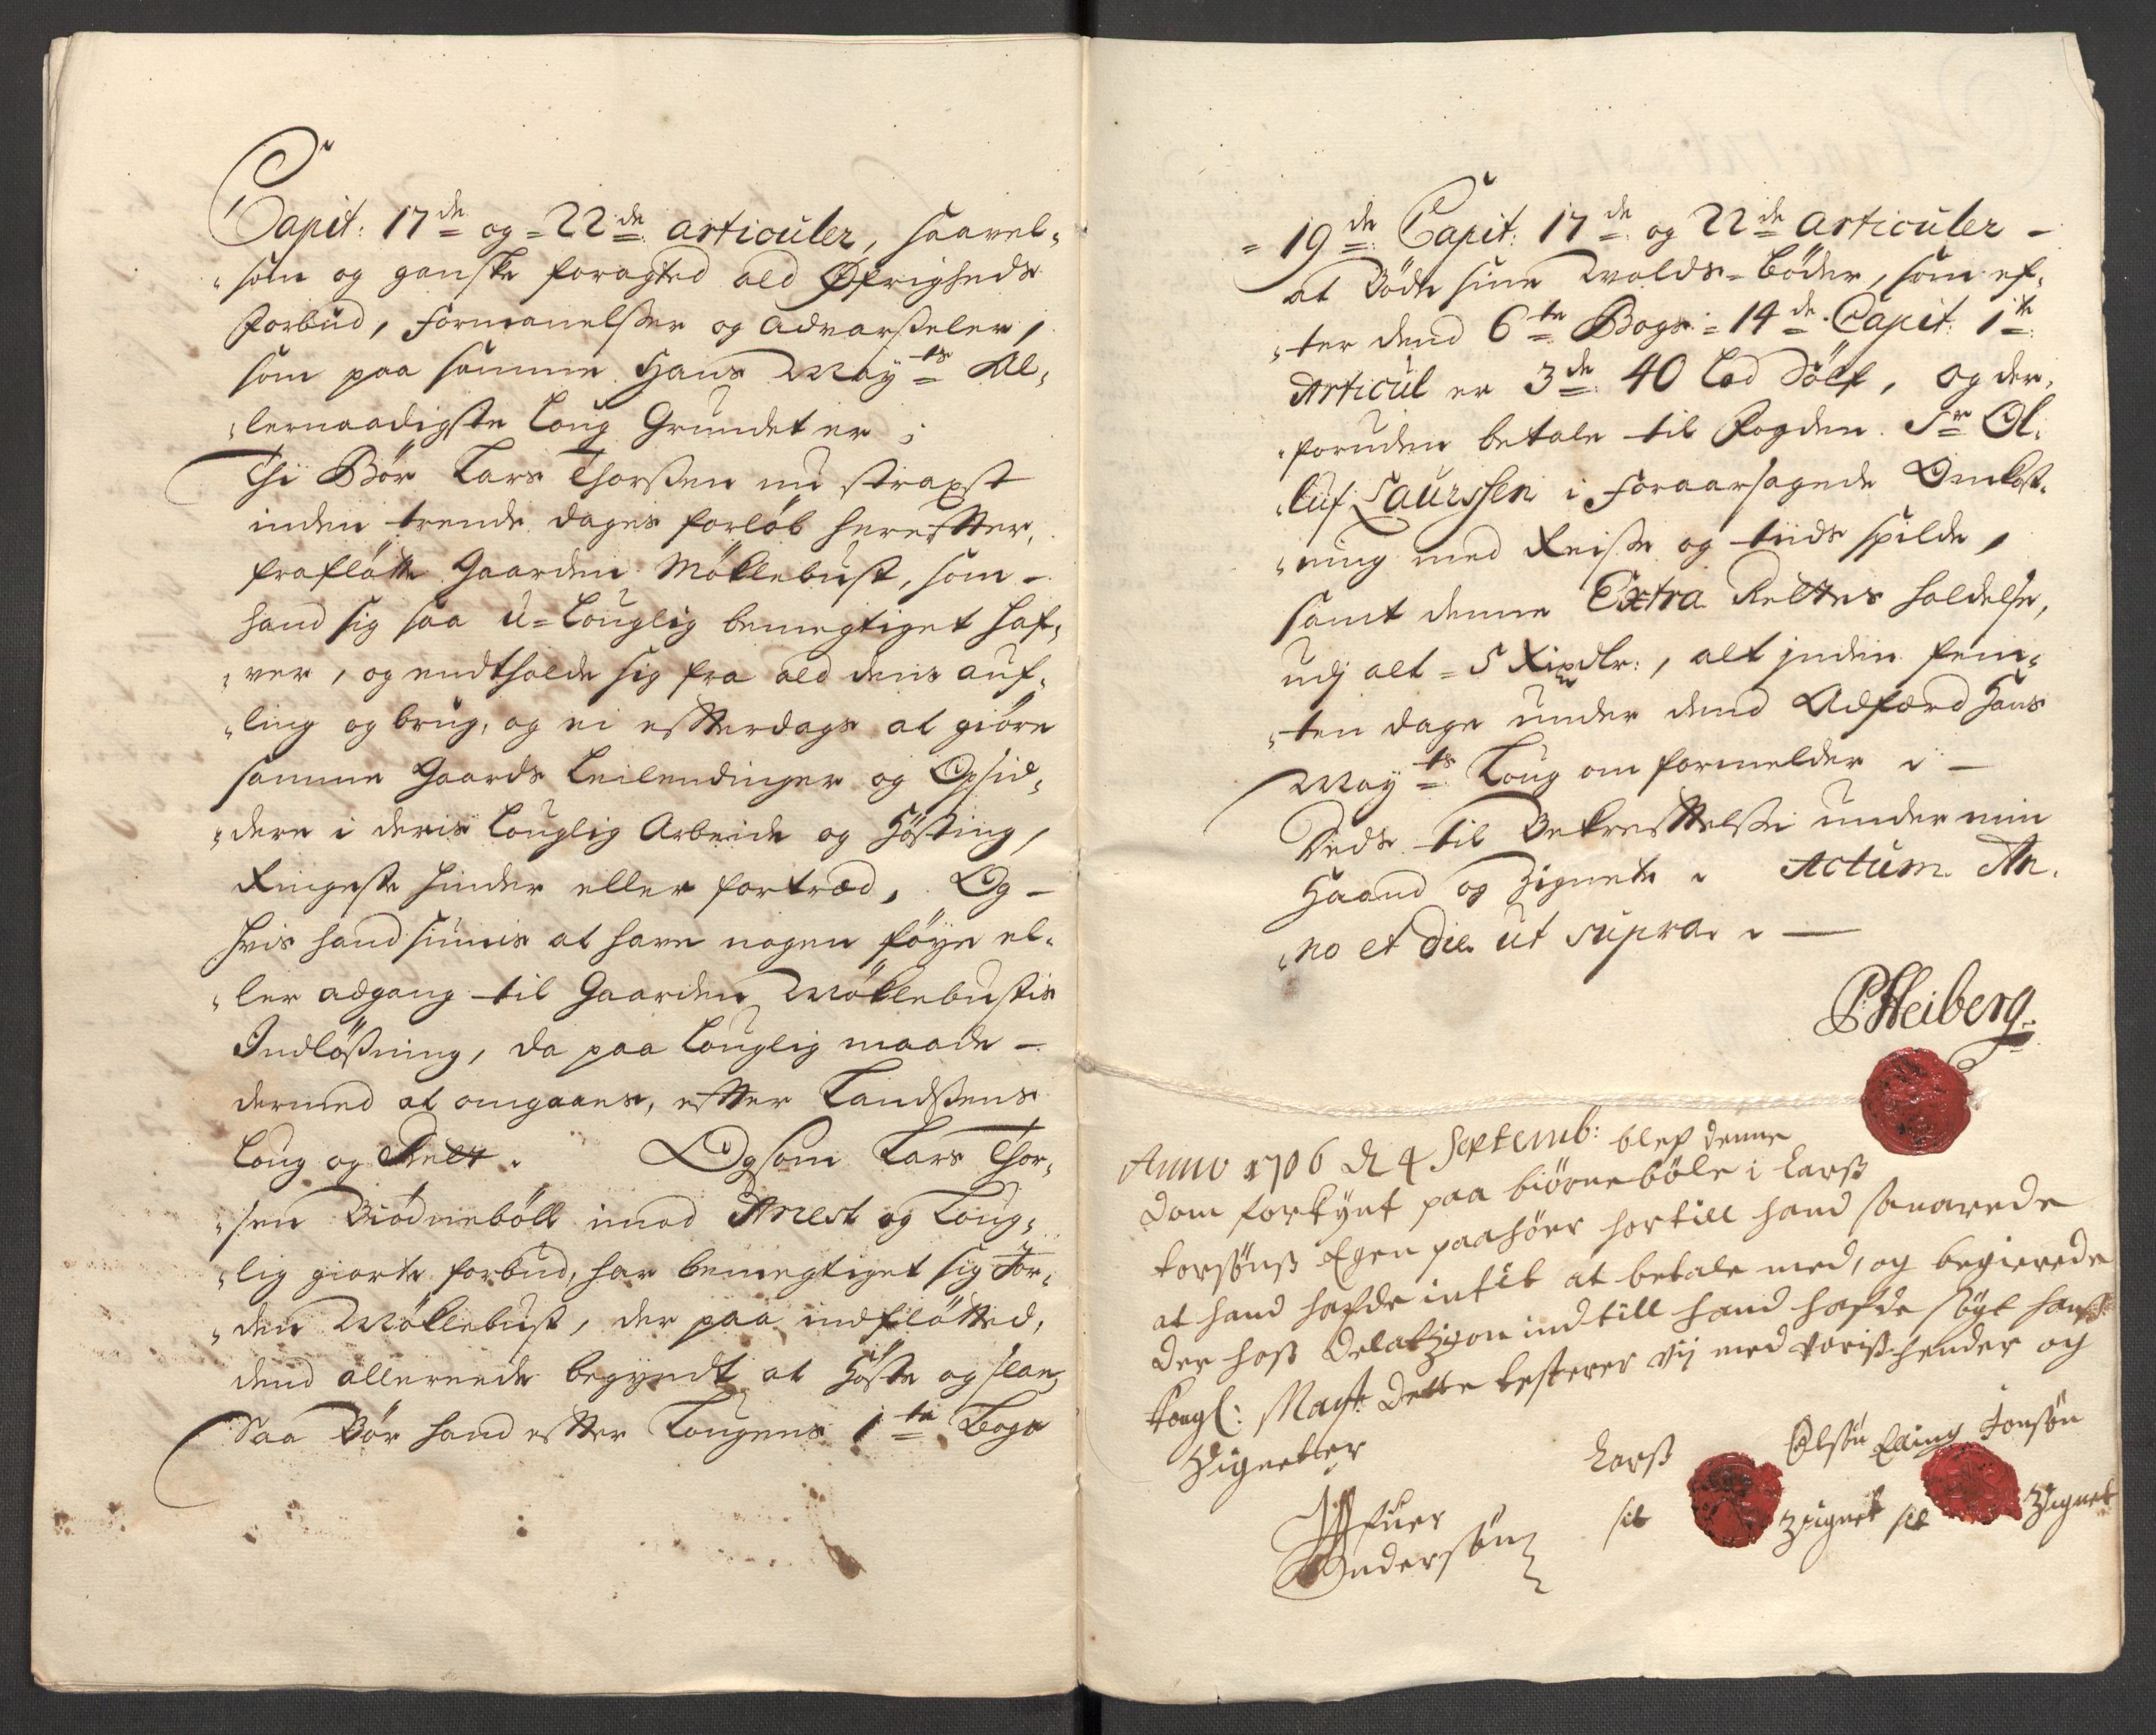 Capit: 17de og 22de articuler, saavel-
som og ganske foragted ald Øfrigheds
Forbud, Formanelser og Advarseler,
som paa samme Hans Mayts Al-
lernaadigste Loug Grundet er;
Thi Bör Lars Thorssen nu strapst
inden trende dages forlöb herefter,
fraflötte Gaarden Möklebust, som
hand sig saa u-Louglig bemegtiget haf-
ver, og endtholde sig fra ald dens auf-
ling og brug, og ei efterdags at giöre
samme Gaards Leilendinger og Opsid-
dere i deris Louglig Arbeide og Hösting,
Ringeste hinder eller fortræd, Og
hvis hand siunis at have nogen föye el-
ler adgang til Gaarden Möklebustis
Indlösning, da paa Louglig maade
dermed at omgaaes, efter Landsens
Loug og Rett. Og som Lars Thor-
sen Biödneböll imod Arrest og Loug-
lig giorte forbud, har bemegtiget sig Jor-
den Möklebust, der paa indflötted,
dend allereede begyndt at Höste og slaa,
Saa Bör hand efter Lougens 1te Bogs
19de Capit: 17de og 22de articuler
atBöde sine Volds-böder, som ef-
ter dend 6te Bogs 14de Capit: 1te
Articul er 3de 40 Lod Sölf, og der-
foruden betale til Fogden Sr Ol-
luf Laurssen i Foraarsagede Omkost-
ning med Reise og tiids spilde,
samt denne Extra Rettes holdelse,
udj alt 5 Rixdlr:, alt inden fem-
ten dage under dend Adfærd Hans
Mayts Loug om formelder
Deds til Bekreftelse under min
Haand og Zignete Actum An-
no et die ut supra.
P: Heiberg
Anno 1706 d 4 Septemb: blef denne
Dom forkynt paa biörneböle i Larß
torsönß Egen paahör hortill hand svarede
at hand hafde intet at betale med, og begierede
der hoß Delatzion indtill hand hafde sögt hanß
Kongl: Mayt: Dette testerer vij med voriß hender og
Zignetter
Larß Olsön Elling Jonsön
sit Zignet sit Zignet
Ifuer
Andersön